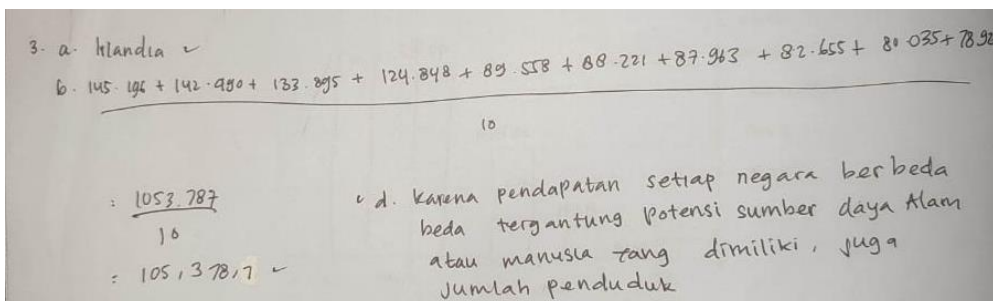 3. a. Irlandia
b. 145.196 + 142.490 + 133.895 + 124.848 + 89.558 + 88.221 + 87.963 + 82.655 + 80.035 + 78.92
10
: 1053.787
10
: 105,378,7
d. Karena pendapatan setiap negara berbeda
beda tergantung potensi sumber daya Alam
atau manusia yang dimiliki, juga
jumlah penduduk